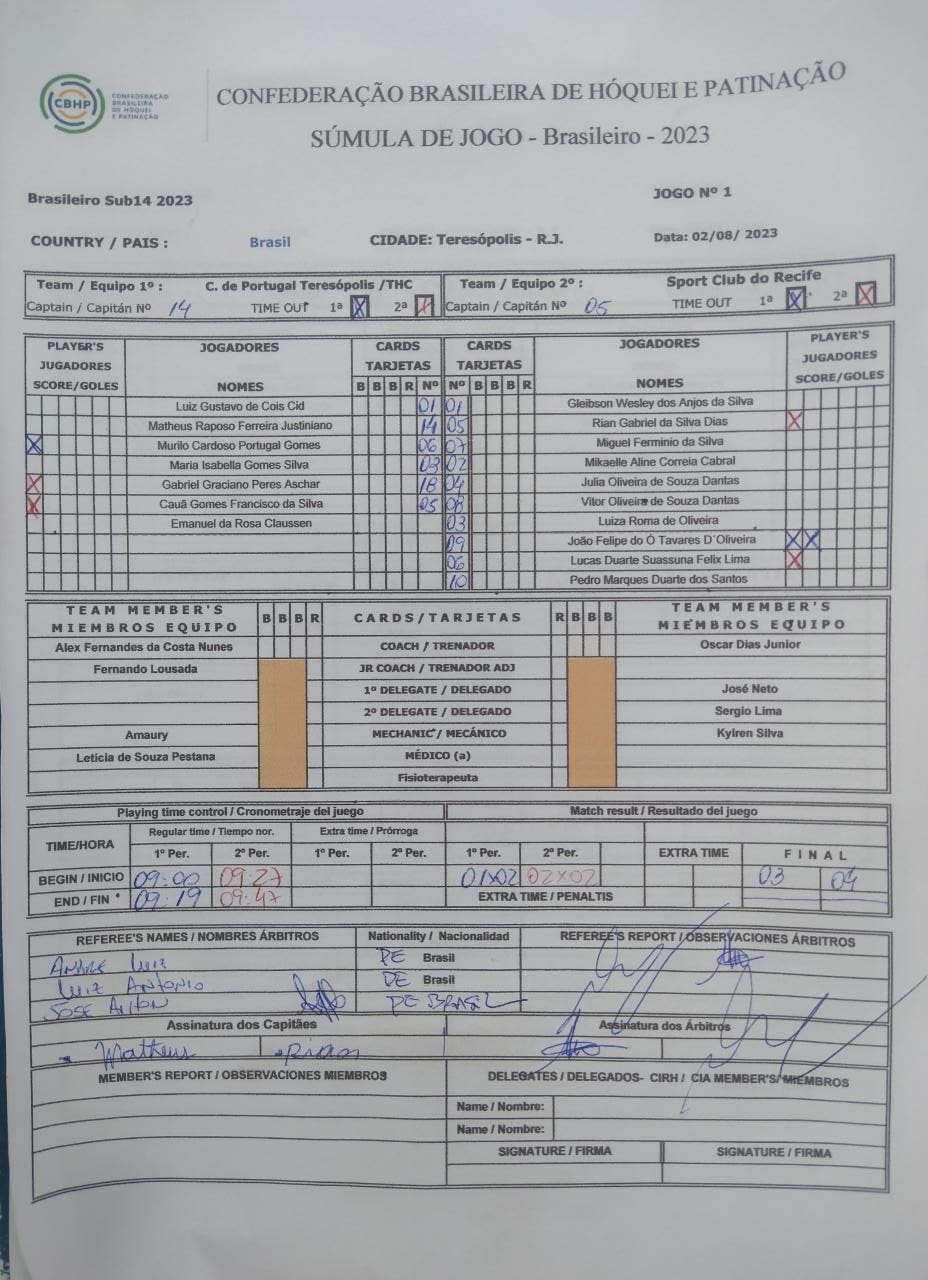 CBHP CONFEDERAÇÃO BRASILEIRA DE HÓQUEI E PATINAÇÃO
CONFEDERAÇÃO BRASILEIRA DE HÓQUEI E PATINAÇÃO
SÚMULA DE JOGO - Brasileiro - 2023
Brasileiro Sub14 2023 JOGO Nº 1
COUNTRY / PAIS : Brasil CIDADE: Teresópolis - R.J. Data: 02/08/ 2023
Team / Equipo 1º : C. de Portugal Teresópolis /THC Team / Equipo 2º : Sport Club do Recife
Captain / Capitán Nº 14 TIME OUT 1ª X 2ª X Captain / Capitán Nº 05 TIME OUT 1ª X 2ª X
PLAYER'S JOGADORES CARDS CARDS JOGADORES PLAYER'S
JUGADORES TARJETAS TARJETAS JUGADORES
SCORE/GOLES NOMES B B B R Nº Nº B B B R NOMES SCORE/GOLES
Luiz Gustavo de Cois Cid 01 01 Gleibson Wesley dos Anjos da Silva
Matheus Raposo Ferreira Justiniano 14 05 Rian Gabriel da Silva Dias X
X Murilo Cardoso Portugal Gomes 06 07 Miguel Ferminio da Silva
Maria Isabella Gomes Silva 03 02 Mikaelle Aline Correia Cabral
X Gabriel Graciano Peres Aschar 18 04 Julia Oliveira de Souza Dantas
X Cauã Gomes Francisco da Silva 05 08 Vitor Oliveira de Souza Dantas
Emanuel da Rosa Claussen 03 Luiza Roma de Oliveira
09 João Felipe do Ó Tavares D´Oliveira X X
06 Lucas Duarte Suassuna Felix Lima X
10 Pedro Marques Duarte dos Santos
TEAM MEMBER'S B B B R CARDS/TARJETAS R B B B TEAM MEMBER'S
MIEMBROS EQUIPO MIEMBROS EQUIPO
Alex Fernandes da Costa Nunes COACH / TRENADOR Oscar Dias Junior
Fernando Lousada JR COACH / TRENADOR ADJ
1º DELEGATE / DELEGADO José Neto
2º DELEGATE / DELEGADO Sergio Lima
Amaury MECHANIC / MECÁNICO Kylren Silva
Leticia de Souza Pestana MÉDICO (a)
Fisioterapeuta
Playing time control / Cronometraje del juego Match result / Resultado del juego
TIME/HORA Regular time / Tiempo nor. Extra time / Prórroga
1º Per. 2º Per. 1º Per. 2º Per. 1º Per. 2º Per. EXTRA TIME FINAL
BEGIN / INICIO 09:00 09:27 01x02 02x02 03 04
END / FIN 09:19 09:47 EXTRA TIME / PENALTIS
REFEREE'S NAMES / NOMBRES ÁRBITROS Nationality / Nacionalidad REFEREE'S REPORT / OBSERVACIONES ÁRBITROS
ANDRE Luiz PE Brasil
Luiz Antonio PE Brasil
JOSE PE BRASIL
Assinatura dos Capitães Assinatura dos Árbitros
Matheus Rian
MEMBER'S REPORT / OBSERVACIONES MIEMBROS DELEGATES / DELEGADOS- CIRH / CIA MEMBER'S/ MIEMBROS
Name / Nombre:
Name / Nombre:
SIGNATURE / FIRMA SIGNATURE / FIRMA